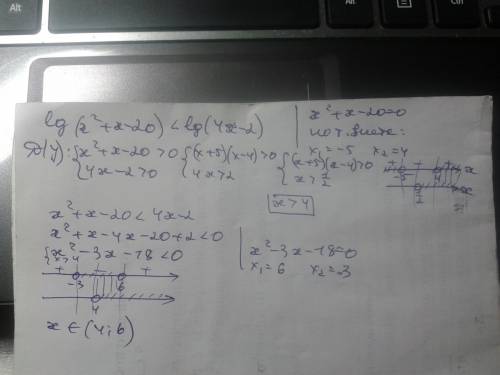 Alt
Ctrl
lg(x²+x-20)<lg(4x-2)
x²+x-20=0
по т. Виета:
x₁=-5 x₂=4
D(y): {x²+x-20>0 {(x+5)(x-4)>0 {(x+5)(x-4)>0
{4x-2>0 {4x>2 {x>1/2
+ - + x
-5 4
1/2 x
x>4
x²+x-20<4x-2
x²+x-4x-20+2<0
{x²-3x-18<0
x>4
x²-3x-18=0
x₁=6 x₂=-3
+ - +
-3 6
4
x∈(4;6)